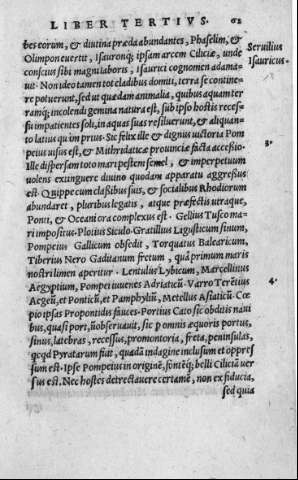 LIBER TERTIVS. 62
bes eorum, & diutina præda abundantes, Phaselim, &
Olimpon euertit, Isauronq; ipsam arcem Ciliciæ, unde
conscius sibi magni laboris, Isaurici cognomen adama
uit. Non ideo tamen tot cladibus domiti, terra se contine-
re potuerunt, sed ut quædam animalia, quibus aquam ter
ramq; incolendi gemina natura est, sub ipso hostis recessu
impatientes soli, in aquas suas resiluerunt, & aliquan-
to latius quàm prius. Sic felix ille & dignus uictoria Pom
peius uisus est, & Mithridaticæ prouinciæ facta accessio.
Ille dispersam toto mari pestem semel, & imperpetuum
uolens extinguere diuino quodam apparatu aggressus
est. Quippe cum classibus suis, & socialibus Rhodiorum
abundaret, pluribus legatis, atque præfectis utraque,
Ponti, & Oceani ora complexus est. Gellius Tusco ma-
ri impositus. Plotius Siculo. Gratillius Ligusticum sinum,
Pompeius Gallicum obsedit, Torquatus Balearicum,
Tiberius Nero Gaditanum fretum, quà primum maris
nostri limen aperitur. Lentulus Lybicum, Marcellinus
Aegyptium, Pompeii iuuenes Adriaticũ. Varro Terẽtius
Aegeũ, et Ponticũ, et Pamphyliũ, Metellus Asiaticũ. Cœ
pio ipsas Propontidis fauces. Portius Cato sic obditis naui
bus, quasi port, ũ obseruauit, sic p omnis æquoris portus,
sinus, latebras, recessus, promontoria, freta, peninsulas,
qcqd Pyratarum fuit, quadã indagine inclusum et oppres
sum est. Ipse Pompeius in originẽ, fontẽq; belli Ciliciã uer
sus est. Nec hostes detrectauere certamẽ, non ex fiducia,
sed quia
Seruilius
Isauricus.
3.
4.